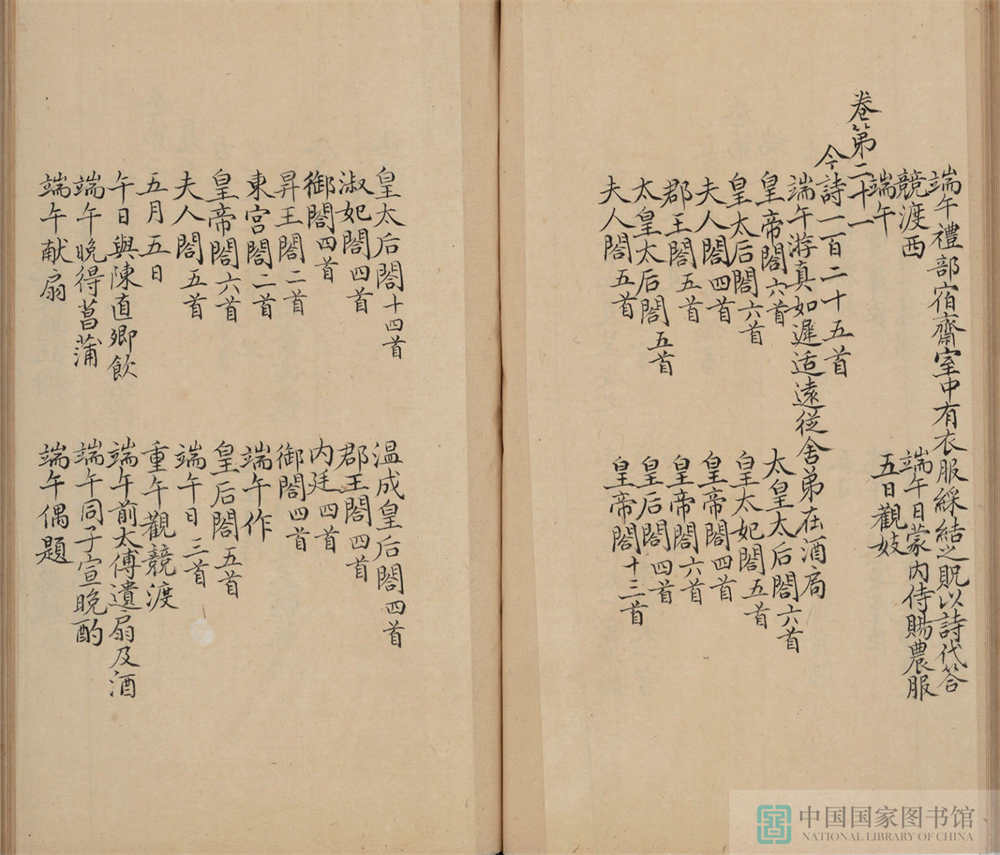 端午禮部宿齋室中有衣服綵結之貺以詩代答
競渡西 端午日蒙内侍賜農服
端午 五日觀妓
卷第二十一
今詩一百二十五首
端午游真如遲适遠從舍弟在酒局
皇帝閤六首 太皇太后閤六首
皇太后閤六首 皇太妃閤五首
夫人閤四首 皇帝閤四首
郡王閤五首 皇帝閤六首
太皇太后閤五首 皇后閤四首
夫人閤五首 皇帝閤十三首
皇太后閤十四首 温成皇后閤四首
淑妃閤四首 郡王閤四首
御閤四首 内廷四首
昇王閤二首 御閤四首
東宮閤二首 端午作
皇帝閤六首 皇后閤五首
夫人閤五首 端午日三首
五月五日 重午觀競渡
午日與陳直卿飲 端午前太傅遺扇及酒
端午晚得菖蒲 端午同子宣晚酌
端午献扇 端午偶題
中国国家图书馆
NATIONAL LIBRARY OF CHINA